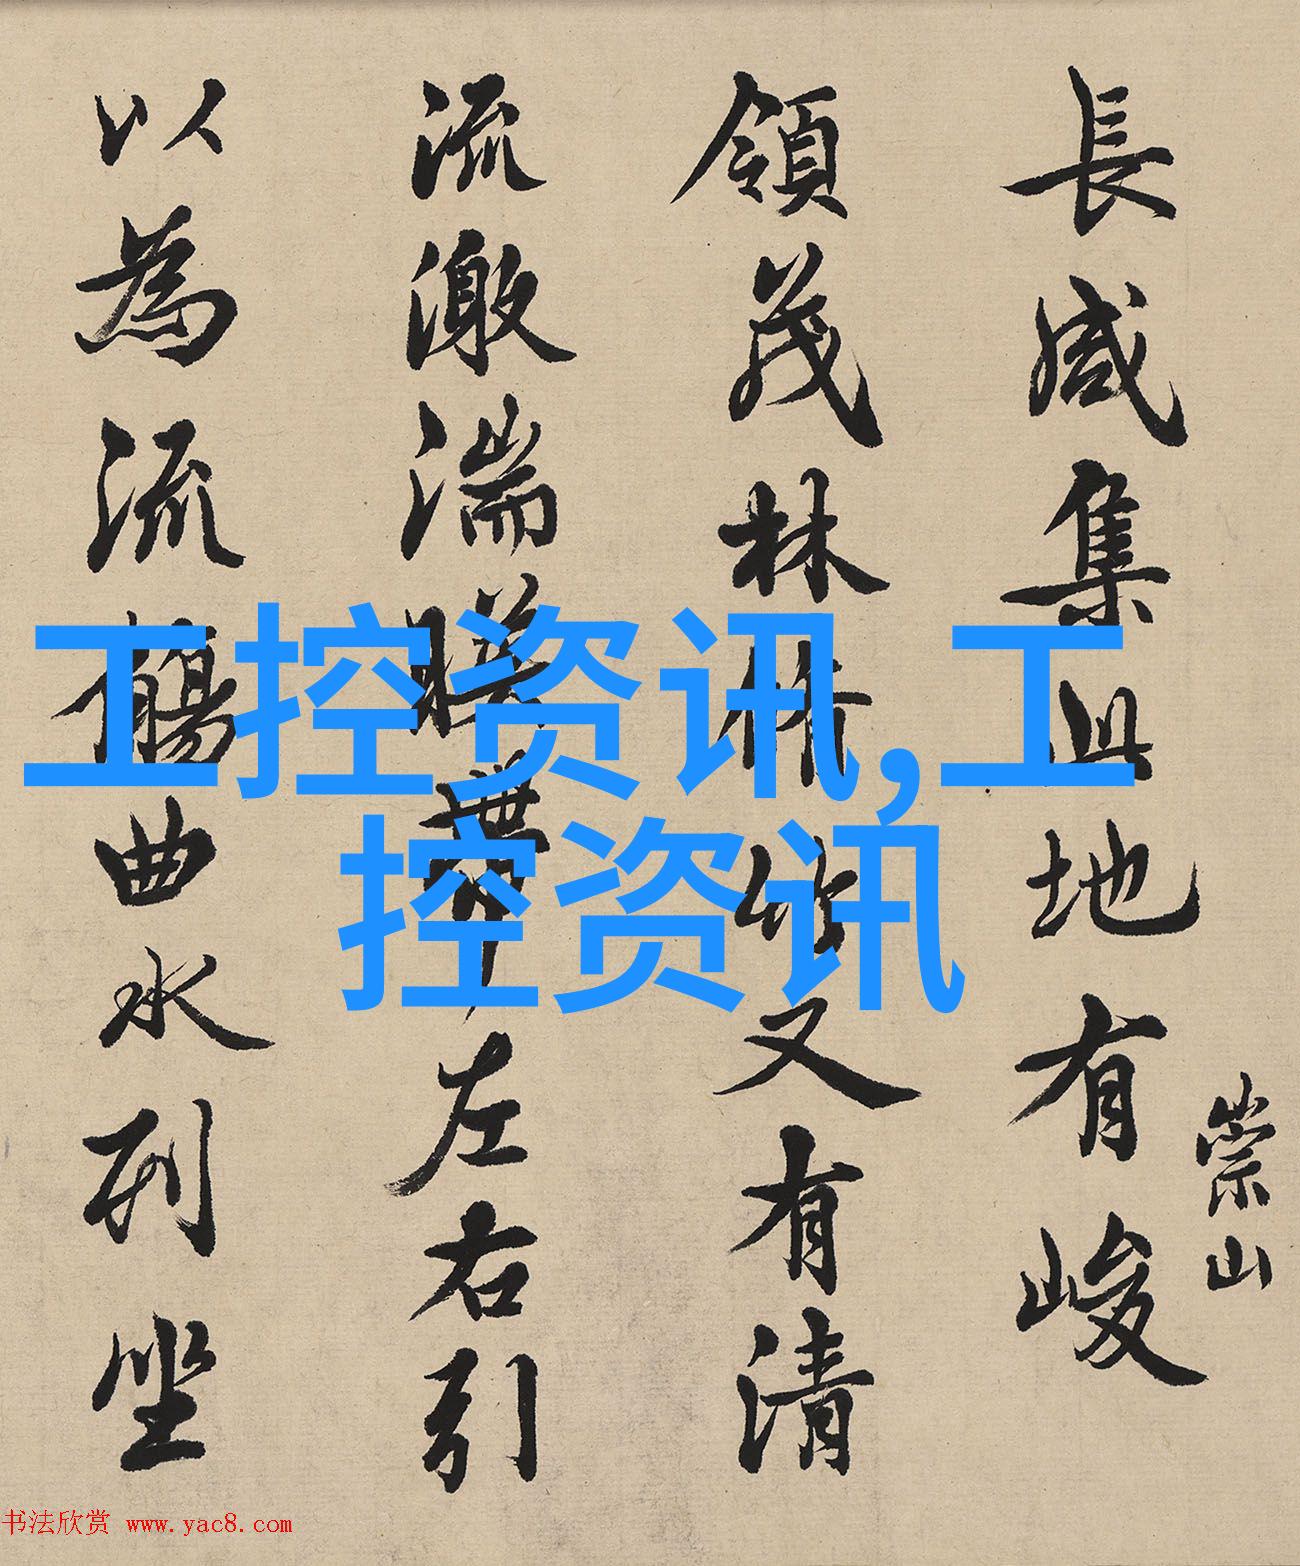 長咸集此地有峻
崇山
領茂林脩竹又有清
流激湍暎帶左右引
以為流觴曲水列坐
工控资讯,工
控资讯
书法欣赏 www.yac8.com